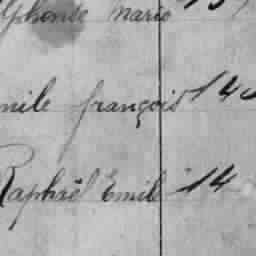 lphonse Marie
mile françois 14
Raphaël Emile 14